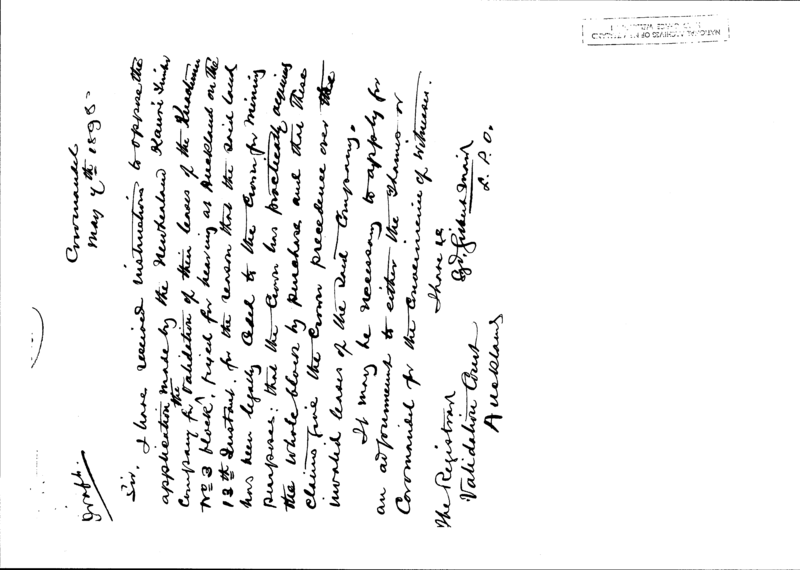 Draft.
Coromandel
May 7th 1898.
Sir. I have received instructions to oppose the
application made by the New Zealand Kauri Timber
Company for the Validation of their leases of the
No 3 block, fixed for hearing at Auckland on the
12th Instant. for the reason that the said land
has been legally Ceded to the Crown for Mining
purposes: that the Crown has practically acquired
the whole block by purchase and that these
claims give the Crown precedence over the
invalid leases of the said Company.
It may be necessary to apply for
an adjournment to either the Thames or
Coromandel for the convenience of Witnesses.
I have &c
Sgd. Gilbert Mair
L. P. O.
The Registrar
Validation Court
Auckland
NATIONAL ARCHIVES OF NEW ZEALAND